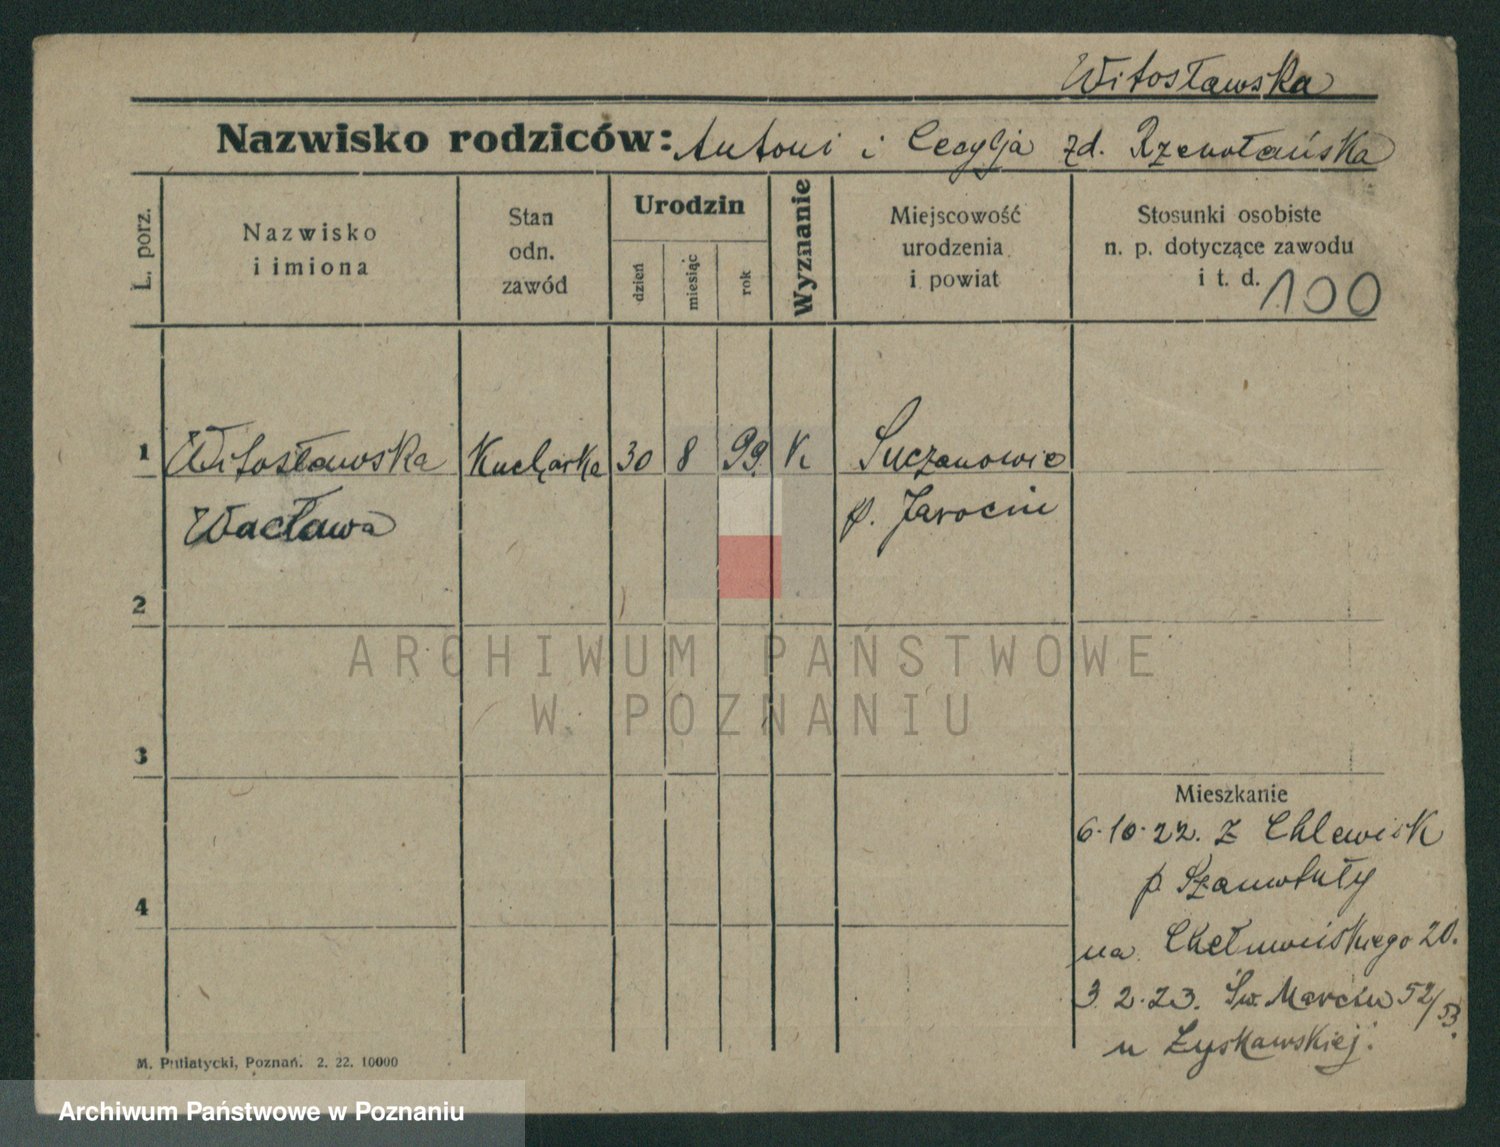 Witosławska
Nazwisko rodziców: Antoni i Cecylja zd.
L. porz.
Nazwisko
i imiona
Stan
odn.
zawód
Urodzin
dzień
miesiąc
rok
Wyznanie
Miejscowość
urodzenia
i powiat
Stosunki osobiste
n. p. dotyczące zawodu
i t. d.
100
1 Witosławska Kucharka 30 8 99. K.
Wacława p. Jarocin
2
ARCHIWUM PAŃSTWOWE
W POZNANIU
3
Mieszkanie
6.10.22. z Chlewisk
4
p. Szamotuły
na Chełmońskiego 20.
3.2.23. Św. Marcin 52/53.
u Łyskawskiej.
M. Putiatycki, Poznań. 2. 22. 10000
Archiwum Państwowe w Poznaniu